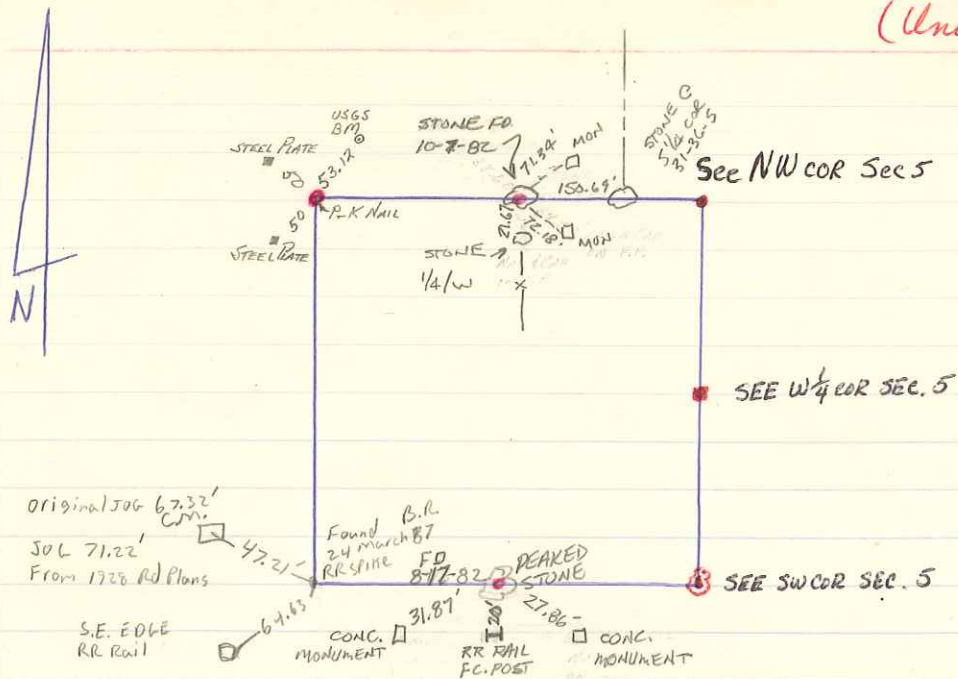 (Un
USGS
BM
STEEL PLATE
53.12
P.K NAIL
50
STEEL PLATE
STONE FD.
10-7-82
71.34'
MON
150.69'
STONE C
S 1/4 COR
31-36-5
See NW COR Sec 5
21.67
72.18'
MON
STONE
1/4/W
N
SEE W 1/4 COR SEC. 5
Original JOG 67.32'
C.M.
47.21'
JOG 71.22'
From 1928 Rd Plans
Found B.R.
24 March 87
RR SPIKE
FD
8-17-82
PEAKED
STONE
SEE SW COR SEC. 5
S.E. EDGE
RR Rail
64.63
31.87'
CONC.
MONUMENT
20'
RR RAIL
FC. POST
27.86
CONC.
MONUMENT